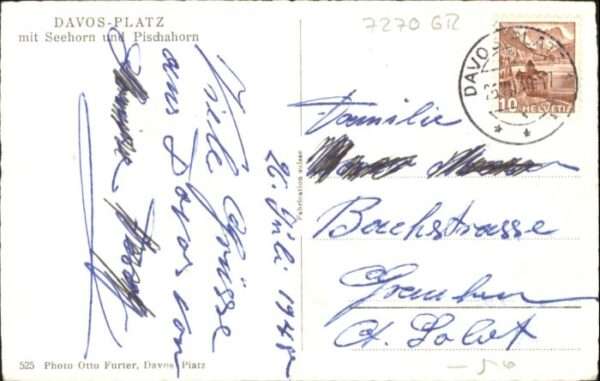 DAVOS-PLATZ
mit Seehorn und Pischahorn
7270 GR
DAVOS PLATZ
10 HELVETIA
Viele Grüsse
aus Davos von
26. Juli 1948
Familie
Bachstrasse
Grenchen
Kt. Soloth
Fabrication suisse
525 Photo Otto Furter, Davos Platz